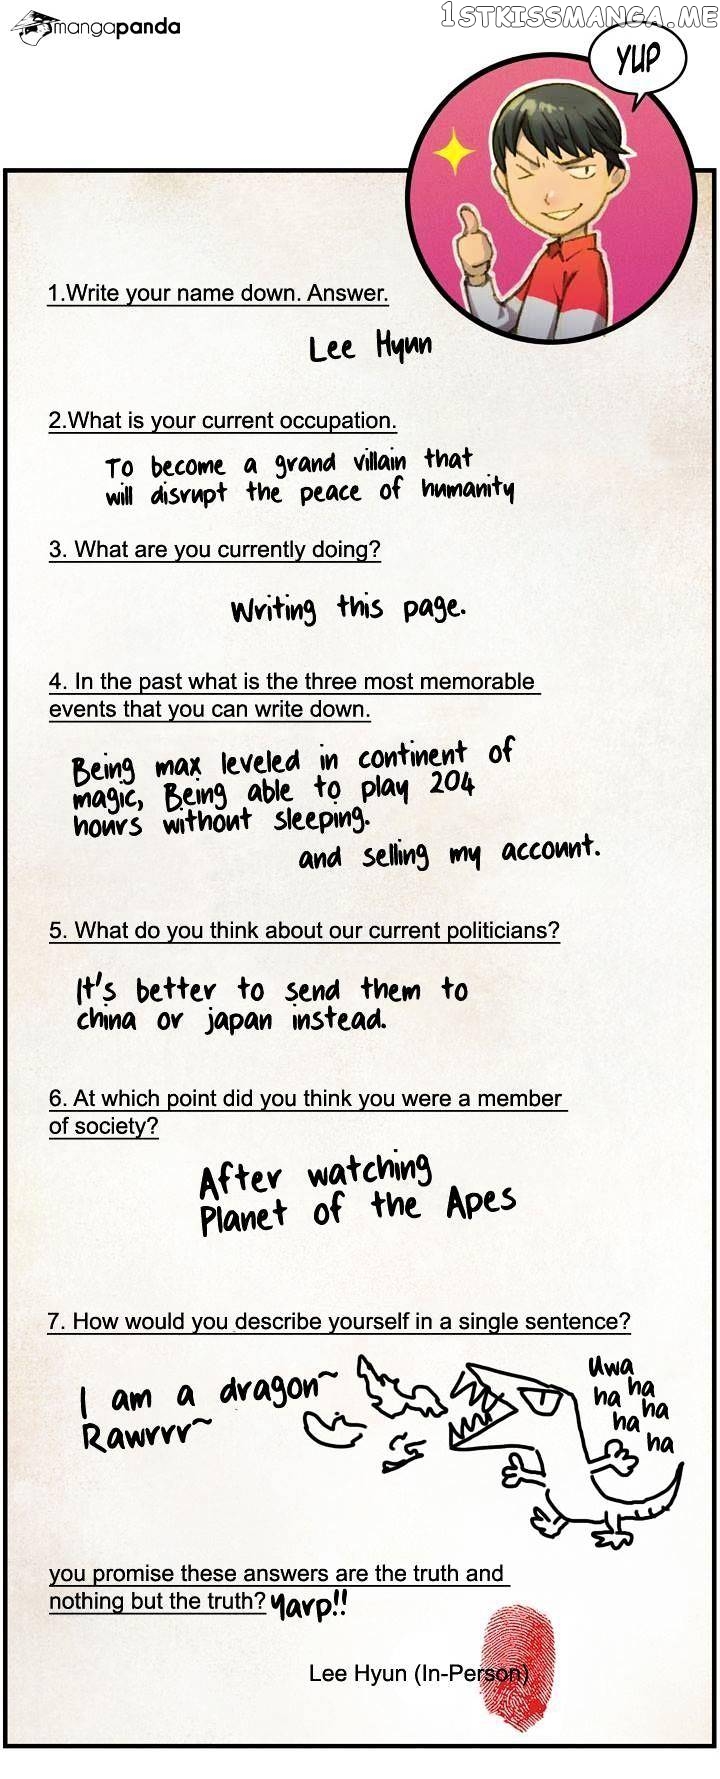 mangapanda
1STKISSMANGA.ME
YUP
1.Write your name down. Answer.
Lee Hyun
2.What is your current occupation.
To become a grand villain that
will disrupt the peace of humanity
3. What are you currently doing?
Writing this page.
4. In the past what is the three most memorable
events that you can write down.
Being max leveled in continent of
magic, Being able to play 204
hours without sleeping.
and selling my account.
5. What do you think about our current politicians?
It's better to send them to
china or japan instead.
6. At which point did you think you were a member
of society?
After watching
Planet of the Apes
7. How would you describe yourself in a single sentence?
I am a dragon~
Rawrrr~
Uwa
ha ha
ha
ha
ha
you promise these answers are the truth and
nothing but the truth? Yarp!!
Lee Hyun (In-Person)